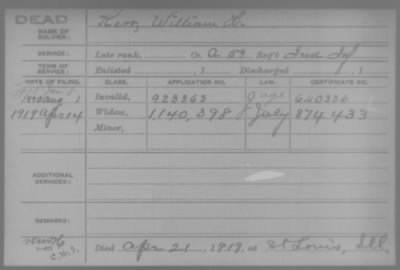 DEAD
NAME OF SOLDIER: Kerr, William H.
SERVICE: Late rank, Co. A 59 Reg't Ind Inf
TERM OF SERVICE: Enlisted , 1 Discharged , 1
DATE OF FILING. CLASS. APPLICATION NO. LAW. CERTIFICATE NO.
1890 Aug 1 Invalid, 923363
1919 Apr 24 Widow, 1,140,398 July 874433
Minor,
ADDITIONAL SERVICES:
REMARKS:
Died Apr 21, 1919, at St Louis, Ill.